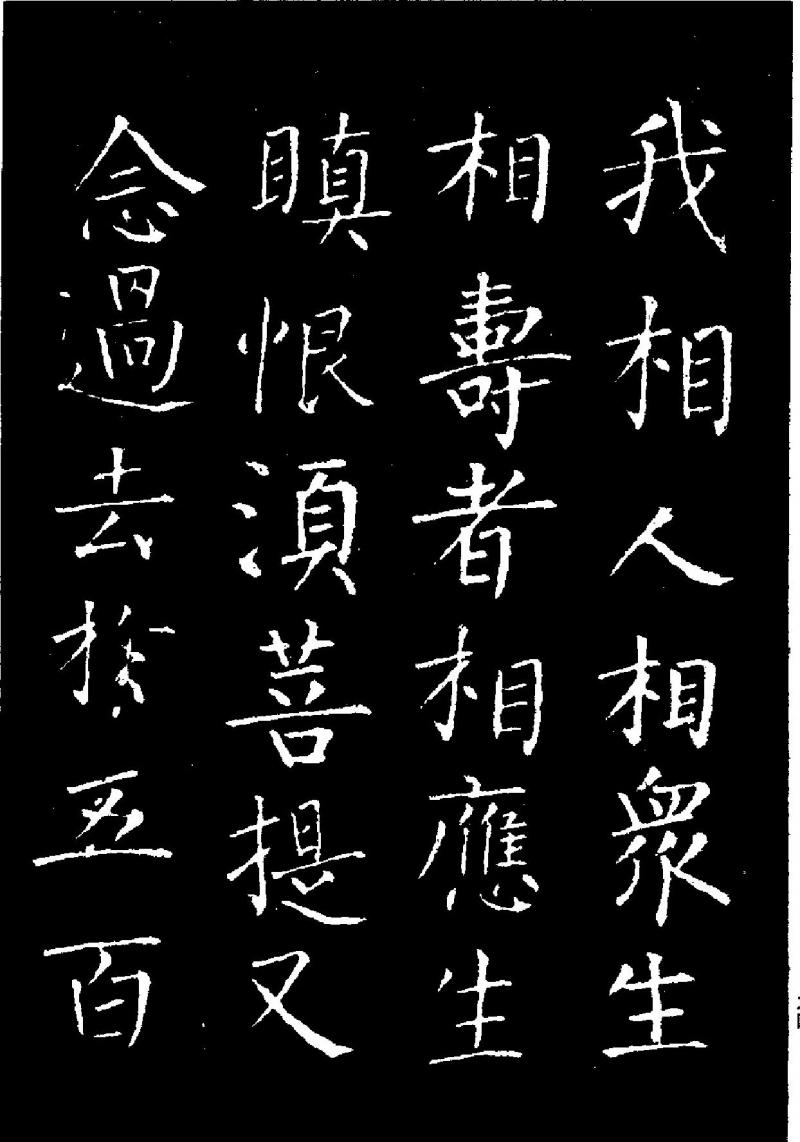 我相人相衆生
相壽者相應生
瞋恨須菩提又
念過去於五百